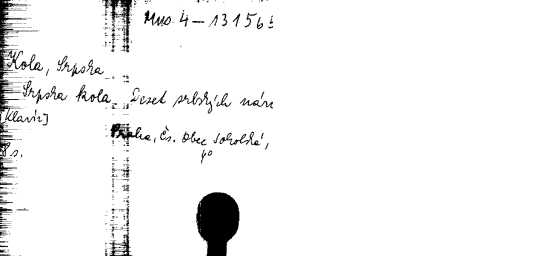 Mus. 4 - 13156
Kola, Srpska
Srpska kola. Deset srbských nár
[Klavír]
Praha, Čs. Obec Sokolská,
4°
8 s.